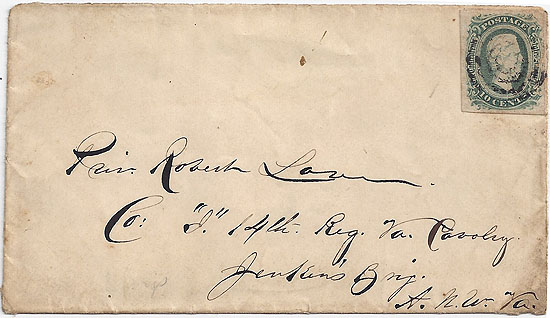 POSTAGE
10 CENTS
Priv. Robert Lowe.
Co: "I." 14th. Reg. Va. Cavalry.
Jenkin's Brig.
A. N. W. Va.